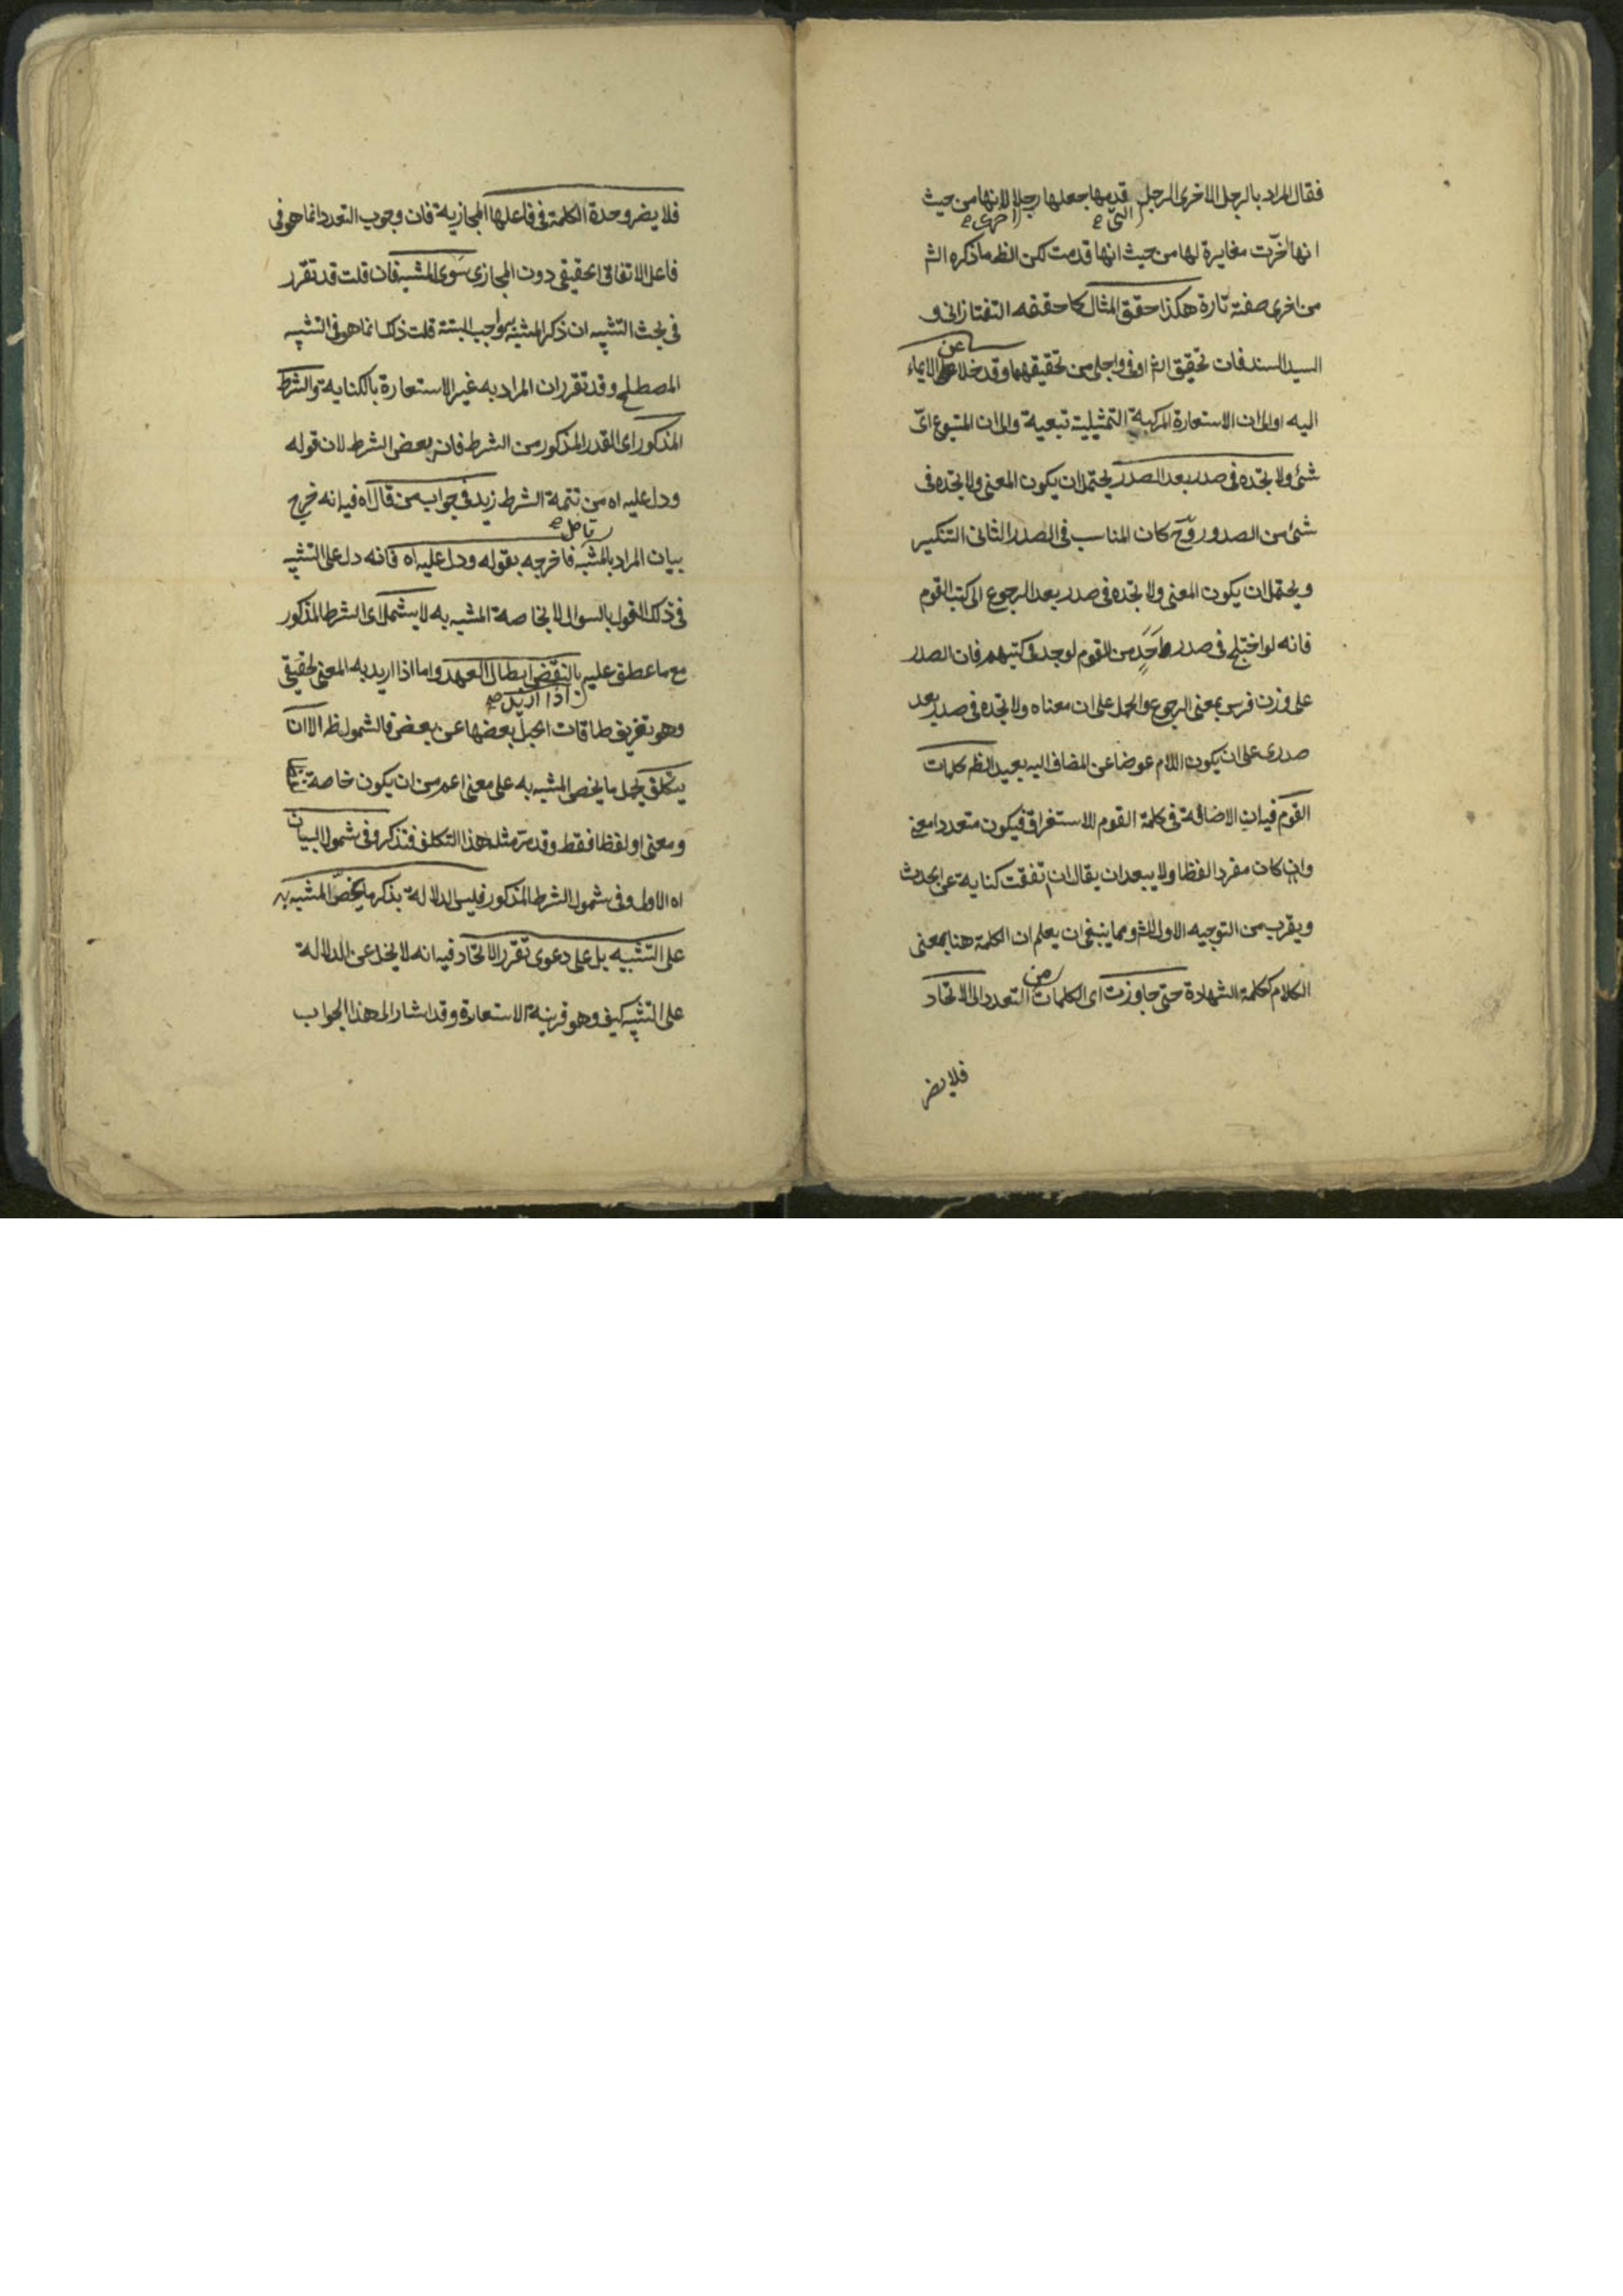 فقال المراد بالرجل الاخرى الرجل قدمها جعلها رجلا لانها من حيث
التى صح اخرى صح
انها اخّرت مغايرة لها من حيث انها قدمت لكن الظ ما ذكره الش
من اخرى صفة تارة هكذا حقق المثال كما حققه التفتازانى و
السيد السند فان تحقيق الش اوفى واجلى من تحقيقهما وقد خلا عن الايماء
اليه اولى ان الاستعارة المركبة التمثيلية تبعية والى ان المتبوع اىّ
شئ ولا تجده فى صدر بعد الصدر يحتمل ان يكون المعنى ولا تجده فى
شئ من الصدور وح كان المناسب فى الصدر الثانى التنكير
ويحتمل ان يكون المعنى ولا تجده فى صدر بعد الرجوع الى كتب القوم
فانه لو اختلج فى صدر واحد من القوم لوجد فى كتبهم فان الصدر
على وزن فرس بمعنى الرجوع والحمل على ان معناه ولا تجده فى صدر بعد
صدرى على ان يكون اللام عوضا عن المضاف اليه بعيد الظ كلمات
القوم فيه ان الاضافة فى كلمة القوم للاستغراق فيكون متعددا معنى
وان كان مفردا لفظا ولا يبعد ان يقال ان تفقت كناية عن
ويقرب من التوجيه الاول للش ومما ينبغى ان يعلم ان الكلمة هنا بمعنى
الكلام ككلمة الشهادة حتى جاوزت اى الكلمات من التعدد الى الاتحاد
فلا يضر
فلا يضر وحدة الكلمة فى فاعلها المجازية فان وجوب التعدد انما هو فى
فاعل الاتفاق الحقيقى دون المجازى سوى المشبه فان قلت قد تقرر
فى بحث التشبيه ان ذكر المشبه به واجب البتة قلت ذلك انما هو فى التشبيه
المصطلح وقد تقرر ان المراد به غير الاستعارة بالكناية والشرط
المذكور اى القدر المذكور من الشرط فانه بعض الشرط لان قوله
ودل عليه اه من تتمة الشرط زيد فى جواب من قال اه فيه انه خرج
تأمل صح
بيان المراد بالمشبه فاخرجه بقوله ودل عليه اه فانه دل على التشبيه
فى ذلك القول بالسوال لا بخاصة المشبه به لا يشتمل اى الشرط المذكور
مع ما عطف عليه بالنقض ابطال العهد واما اذا اريد به المعنى الحقيقى
اذا اريد صح
وهو تفريق طاقات الحبل بعضها عن بعض فالشمول ظ الا ان
يتكلف بحمل ما يخص المشبه به على معنى اعم من ان يكون خاصة
ومعنى او لفظا فقط وقد مر مثل هذا التكلف فتذكر وفى شمول البيان
اه الاول وفى شمول الشرط المذكور فليس الدلالة بذكر ما يخصّ المشبه به
على التشبيه بل على دعوى تقرر الاتحاد فيه انه لا يخلو عن الدلالة
على التشبيه كيف وهو قرينة الاستعارة وقد اشار الى هذا الجواب